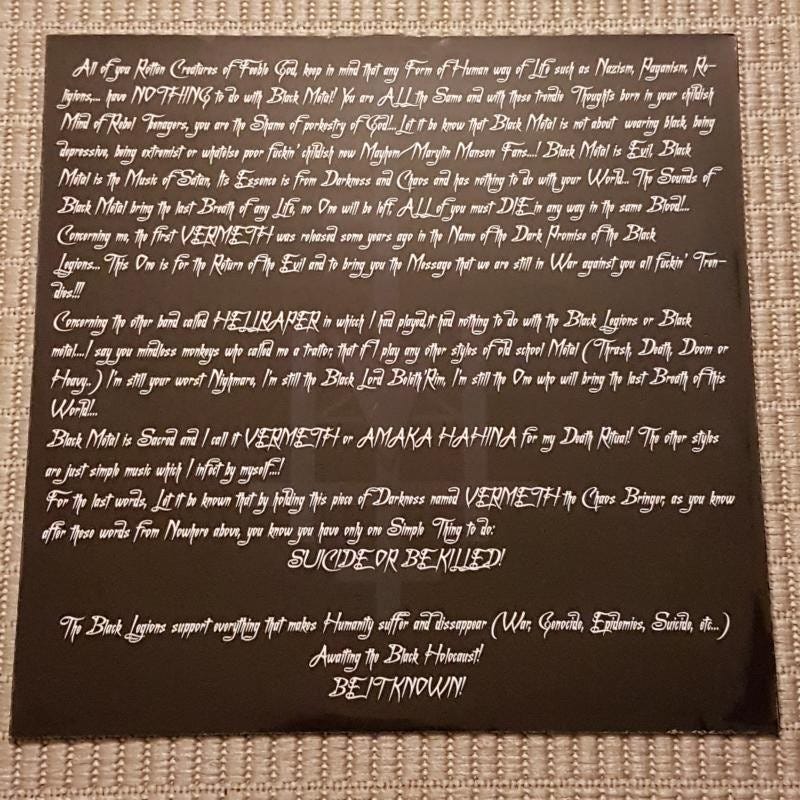 All of you Rotten Creatures of Feeble God, keep in mind that any Form of Human way of Life such as Nazism, Paganism, Re-
ligions,... have NOTHING to do with Black Metal! You are ALL the Same and with these trendie Thoughts born in your childish
Mind of Rebel Teenagers, you are the Shame of porkestry of God!... Let it be know that Black Metal is not about wearing black, being
depressive, being extremist or whatelse poor fuckin' childish new Mayhem/Maryln Manson Fans...! Black Metal is Evil, Black
Metal is the Music of Satan, Its Essence is from Darkness and Chaos and has nothing to do with your World... The Sounds of
Black Metal bring the last Breath of any Life, no One will be left, ALL of you must DIE in any way in the same Blood!...
Concerning me, the first VERMETH was released some years ago in the Name of the Dark Promise of the Black
Legions... This One is for the Return of the Evil and to bring you the Message that we are still in War against you all fuckin' Tren-
dies!!!
Concerning the other band called HELLRAPER in wicich I had played,it had nothing to do with the Black Legions or Black
metal...I say you mindless monkeys who called me a traitor, that if I play any other styles of old school Metal ( Thrash, Death, Doom or
Heavy..) I'm still your worst Nighmare, I'm still the Black Lord Beleth'Rim, I'm still the One who will bring the last Breath of this
World!...
Black Metal is Sacred and I call it VERMETH or AMAKA HAHINA for my Death Ritual! The other styles
are just simple music which I infect by myself...!
For the last words, Let it be known that by holding this piece of Darkness named VERMETH the Chaos Bringer, as you know
after these words from Nowhere above, you know you have only one Simple Thing to do:
SUICIDE OR BE KILLED!
The Black Legions support everything that makes Humanity suffer and dissappear (War, Genocide, Epidemies, Suicide, etc...)
Awaiting the Black Holocaust!
BE IT KNOWN!